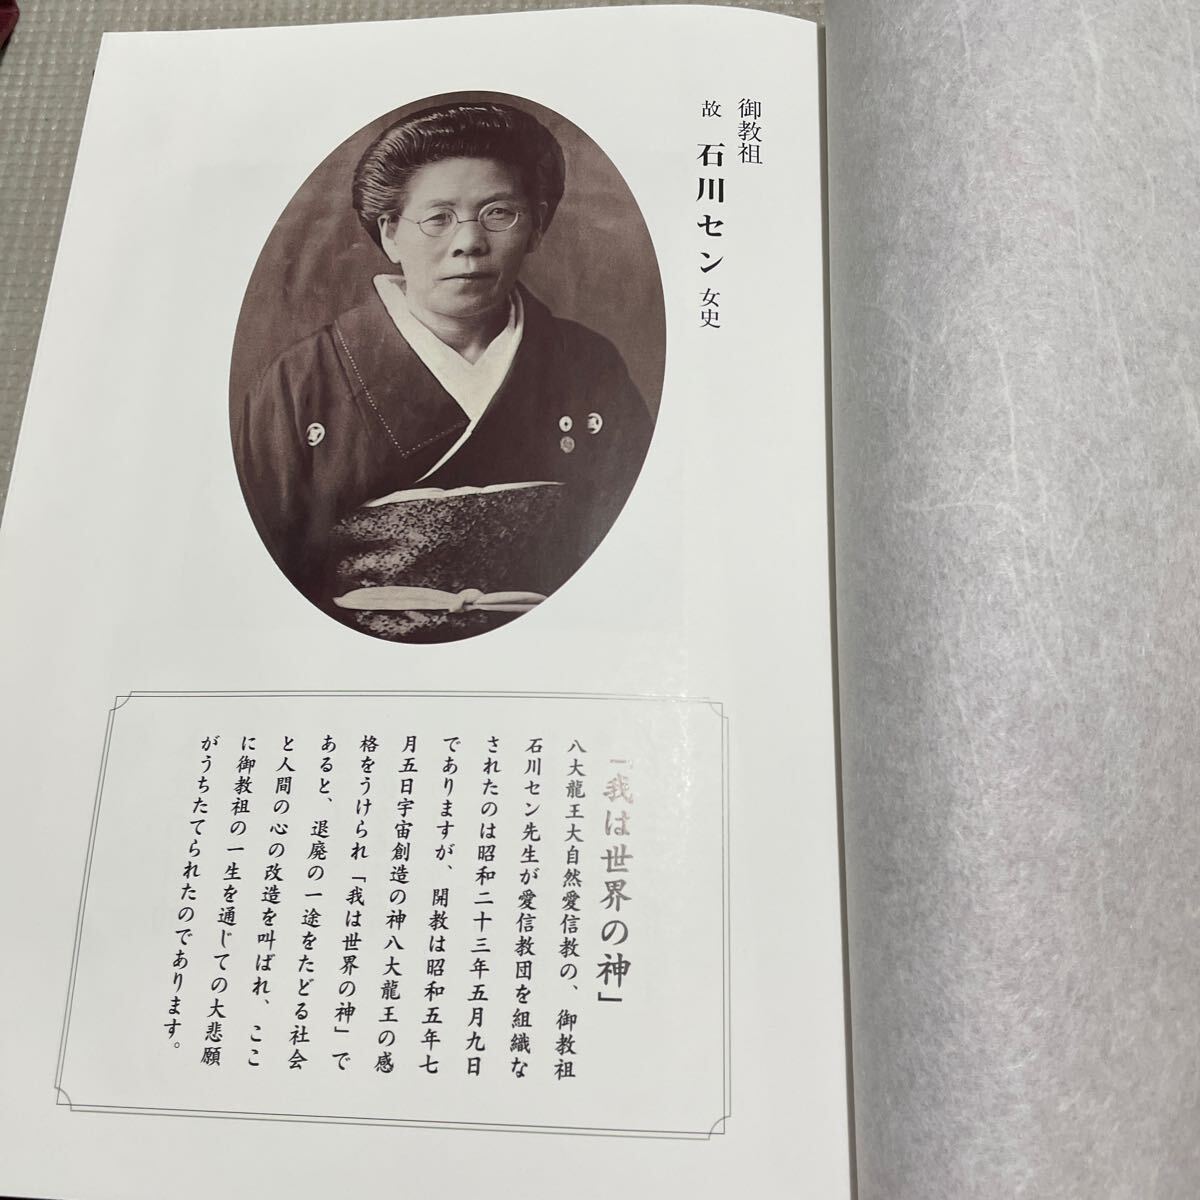 御教祖
故 石川セン 女史
「我は世界の神」
八大龍王大自然愛信教の、御教祖
石川セン先生が愛信教団を組織な
されたのは昭和二十三年五月九日
でありますが、開教は昭和五年七
月五日宇宙創造の神八大龍王の感
格をうけられ「我は世界の神」で
あると、退廃の一途をたどる社会
と人間の心の改造を叫ばれ、ここ
に御教祖の一生を通じての大悲願
がうちたてられたのであります。